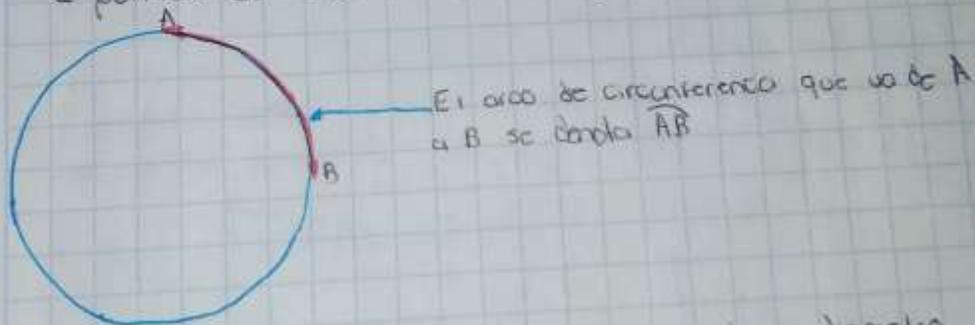 A
El arco de circunferencia que va de A
a B se denota AB
B